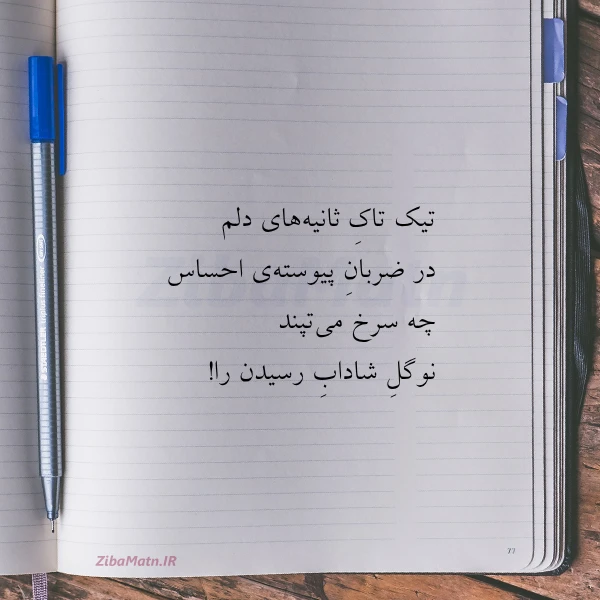 تیک تاکِ ثانیه‌های دلم
در ضربانِ پیوسته‌ی احساس
چه سرخ می‌تپند
نوگلِ شادابِ رسیدن را!
ZibaMatn.IR